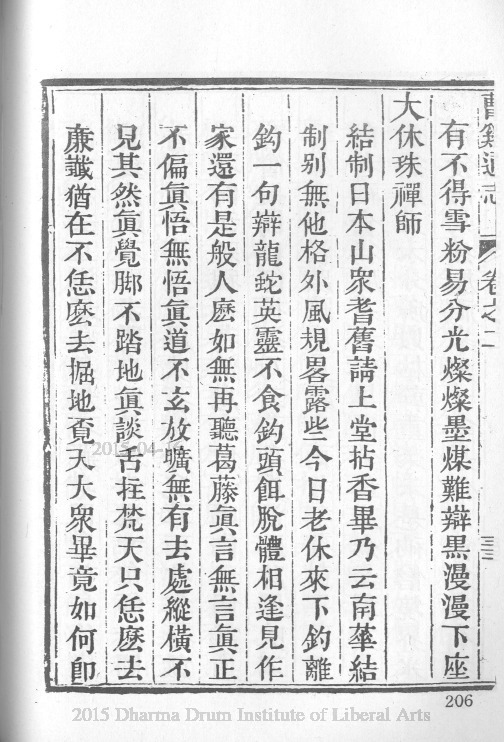 曹谿通志 卷之二
有不得雪粉易分光燦燦墨煤難辯黒漫漫下座
大休珠禪師
結制日本山衆耆舊請上堂拈香畢乃云南華結
制别無他格外風規畧露些今日老休來下釣離
鈎一句辯龍蛇英靈不食鈎頭餌脫體相逢見作
家還有是般人麽如無再聽葛藤眞言無言眞正
不偏眞悟無悟眞道不玄放曠無有去處縱橫不
見其然眞覺脚不踏地眞談舌拄梵天只恁麽去
廉讖猶在不恁麽去掘地覔天大衆畢竟如何卽
三三
206
2015-04-
2015 Dharma Drum Institute of Liberal Arts